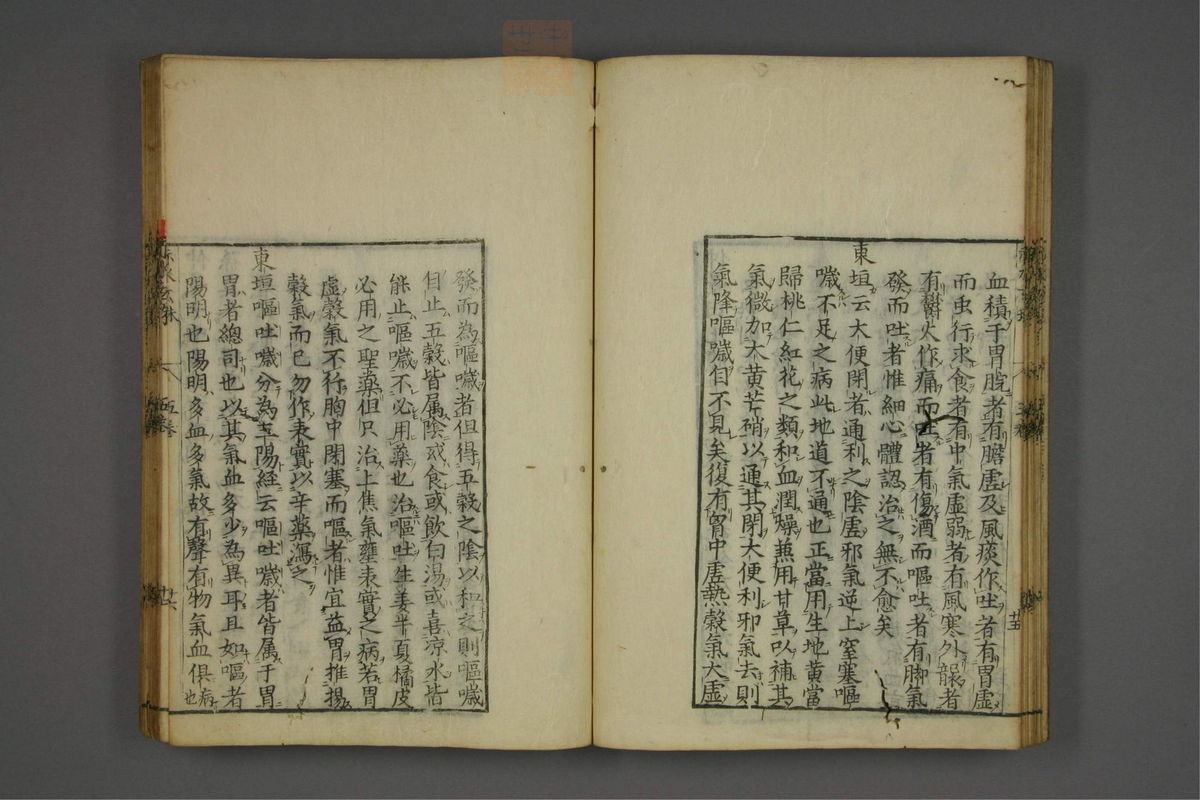 血積于胃脘者有膽虛及風痰作吐者有胃虛
而虫行求食者有中氣虛弱者有風寒外襲者
有鬱火作痛而吐者有傷酒而嘔吐者有脚氣
發而吐者惟細心體認治之無不愈矣
東垣云大便閉者通利之陰虛邪氣逆上窒塞嘔
噦不足之病此地道不通也正當用生地黄當
歸桃仁紅花之類和血潤燥兼用甘草以補其
氣微加大黄芒硝以通其閉大便利邪氣去則
氣降嘔噦自不見矣復有胃中虛熱穀氣大虛
廿五
發而為嘔噦者但得五穀之陰以和之則嘔噦
自止五穀皆属陰或食或飲白湯或喜凉水皆
能止嘔噦不必用藥也治嘔吐生姜半夏橘皮
必用之聖藥但只治上焦氣壅表實之病若胃
虛穀氣不行胸中閉塞而嘔者惟宜益胃推揚
穀氣而已勿作表實以辛藥瀉之
東垣嘔吐噦分為三陽經云嘔吐噦者皆属于胃
胃者總司也以其氣血多少為異耳且如嘔者
陽明也陽明多血多氣故有聲有物氣血俱病也
五卷
廿六